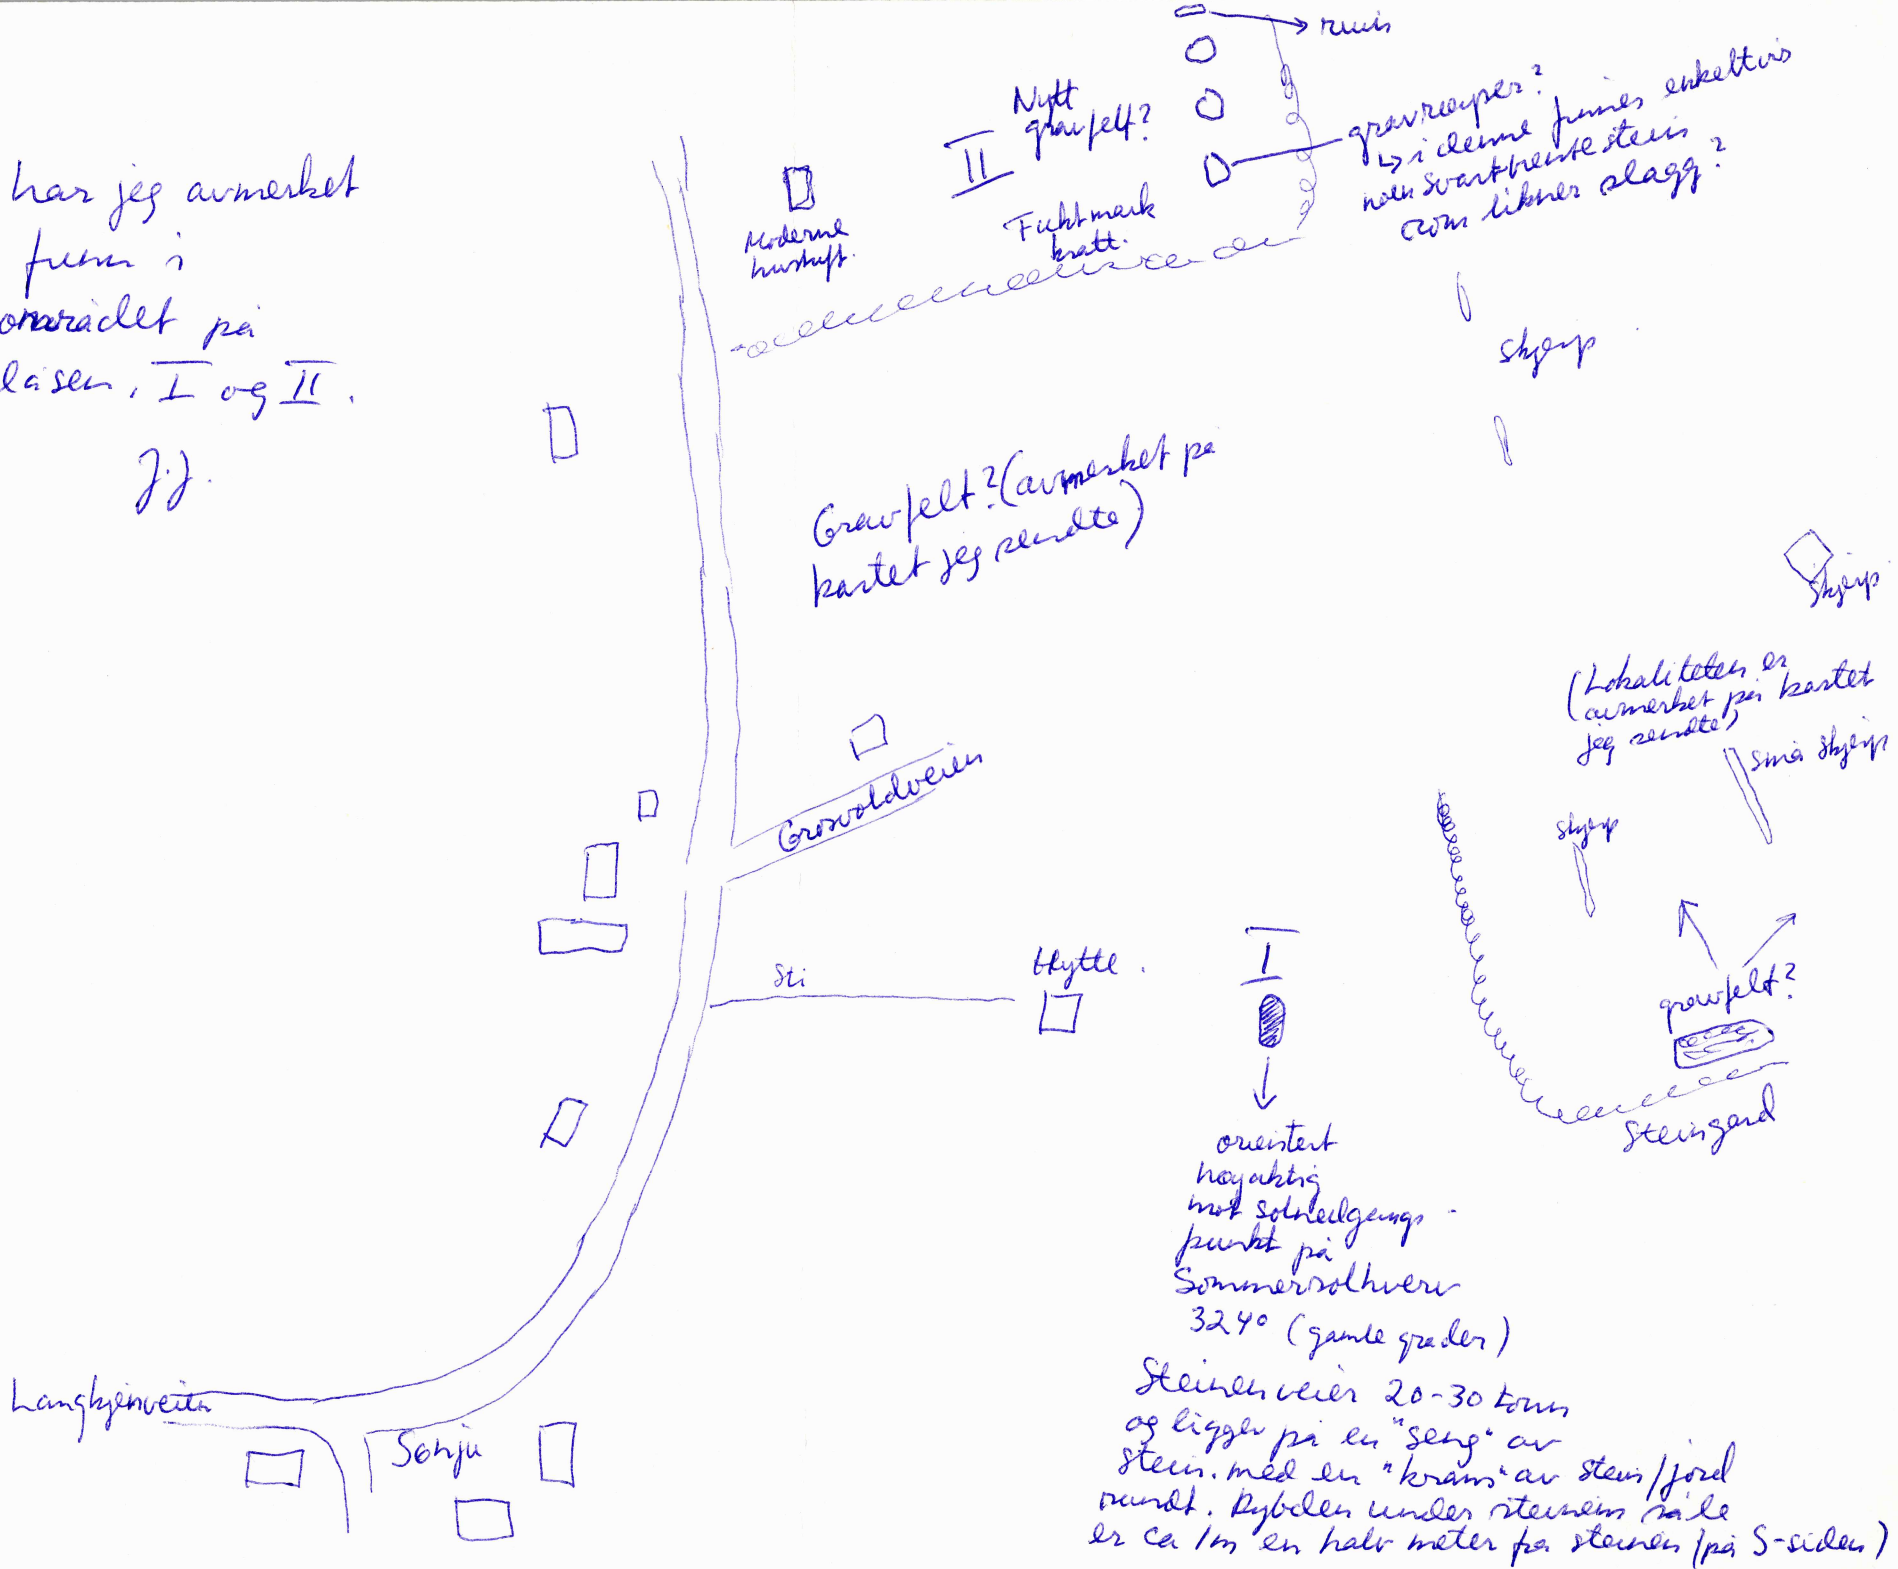 har jeg avmerket
funn i
området på
låsen, I og II.
J.J.
ruin
Nytt
gravfelt?
II
gravrøyser?
↳ i denne finnes enkeltvis
noen svartbrente stein
som likner slagg?
Moderne
hustuft.
Fuktmark
kratt.
skjerp
Gravfelt? (avmerket på
kartet jeg sendte)
skjerp
(Lokaliteten er
avmerket på kartet
jeg sendte)
små skjerp
skjerp
Grosvoldveien
Sti
Hytte.
I
gravfelt?
Steingard
orientert
nøyaktig
mot solnedgangs-
punkt på
Sommersolhverv
324° (gamle grader)
Steinen veier 20-30 tonn
og ligger på en "seng" av
stein. med en "krans" av stein/jord
rundt. Dybden under steinens såle
er ca 1m en halv meter fra steinen (på S-siden)
Langkjenveien
Sønju